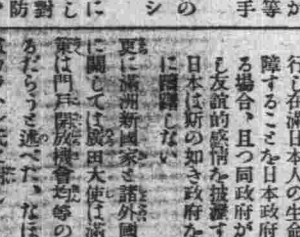 が
等
手
の
シ
に
し
對
防
行し在滿日本人の生命
障することを日本政府
る場合、且つ同政府が
も友誼的感情を披瀝す
日本は斯の如き政府を
に躊躇しない
更に滿洲新國家と諸外國
に關しては廣田大使は滿
策は門戸開放機會均等の
るだらうと述べた、なほ